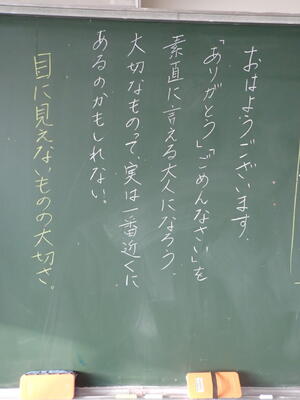 おはようございます.
「ありがとう」「ごめんなさい」を
素直に言える大人になろう.
大切なものって、実は一番近くに
あるのかもしれない.
目に見えないものの大切さ。